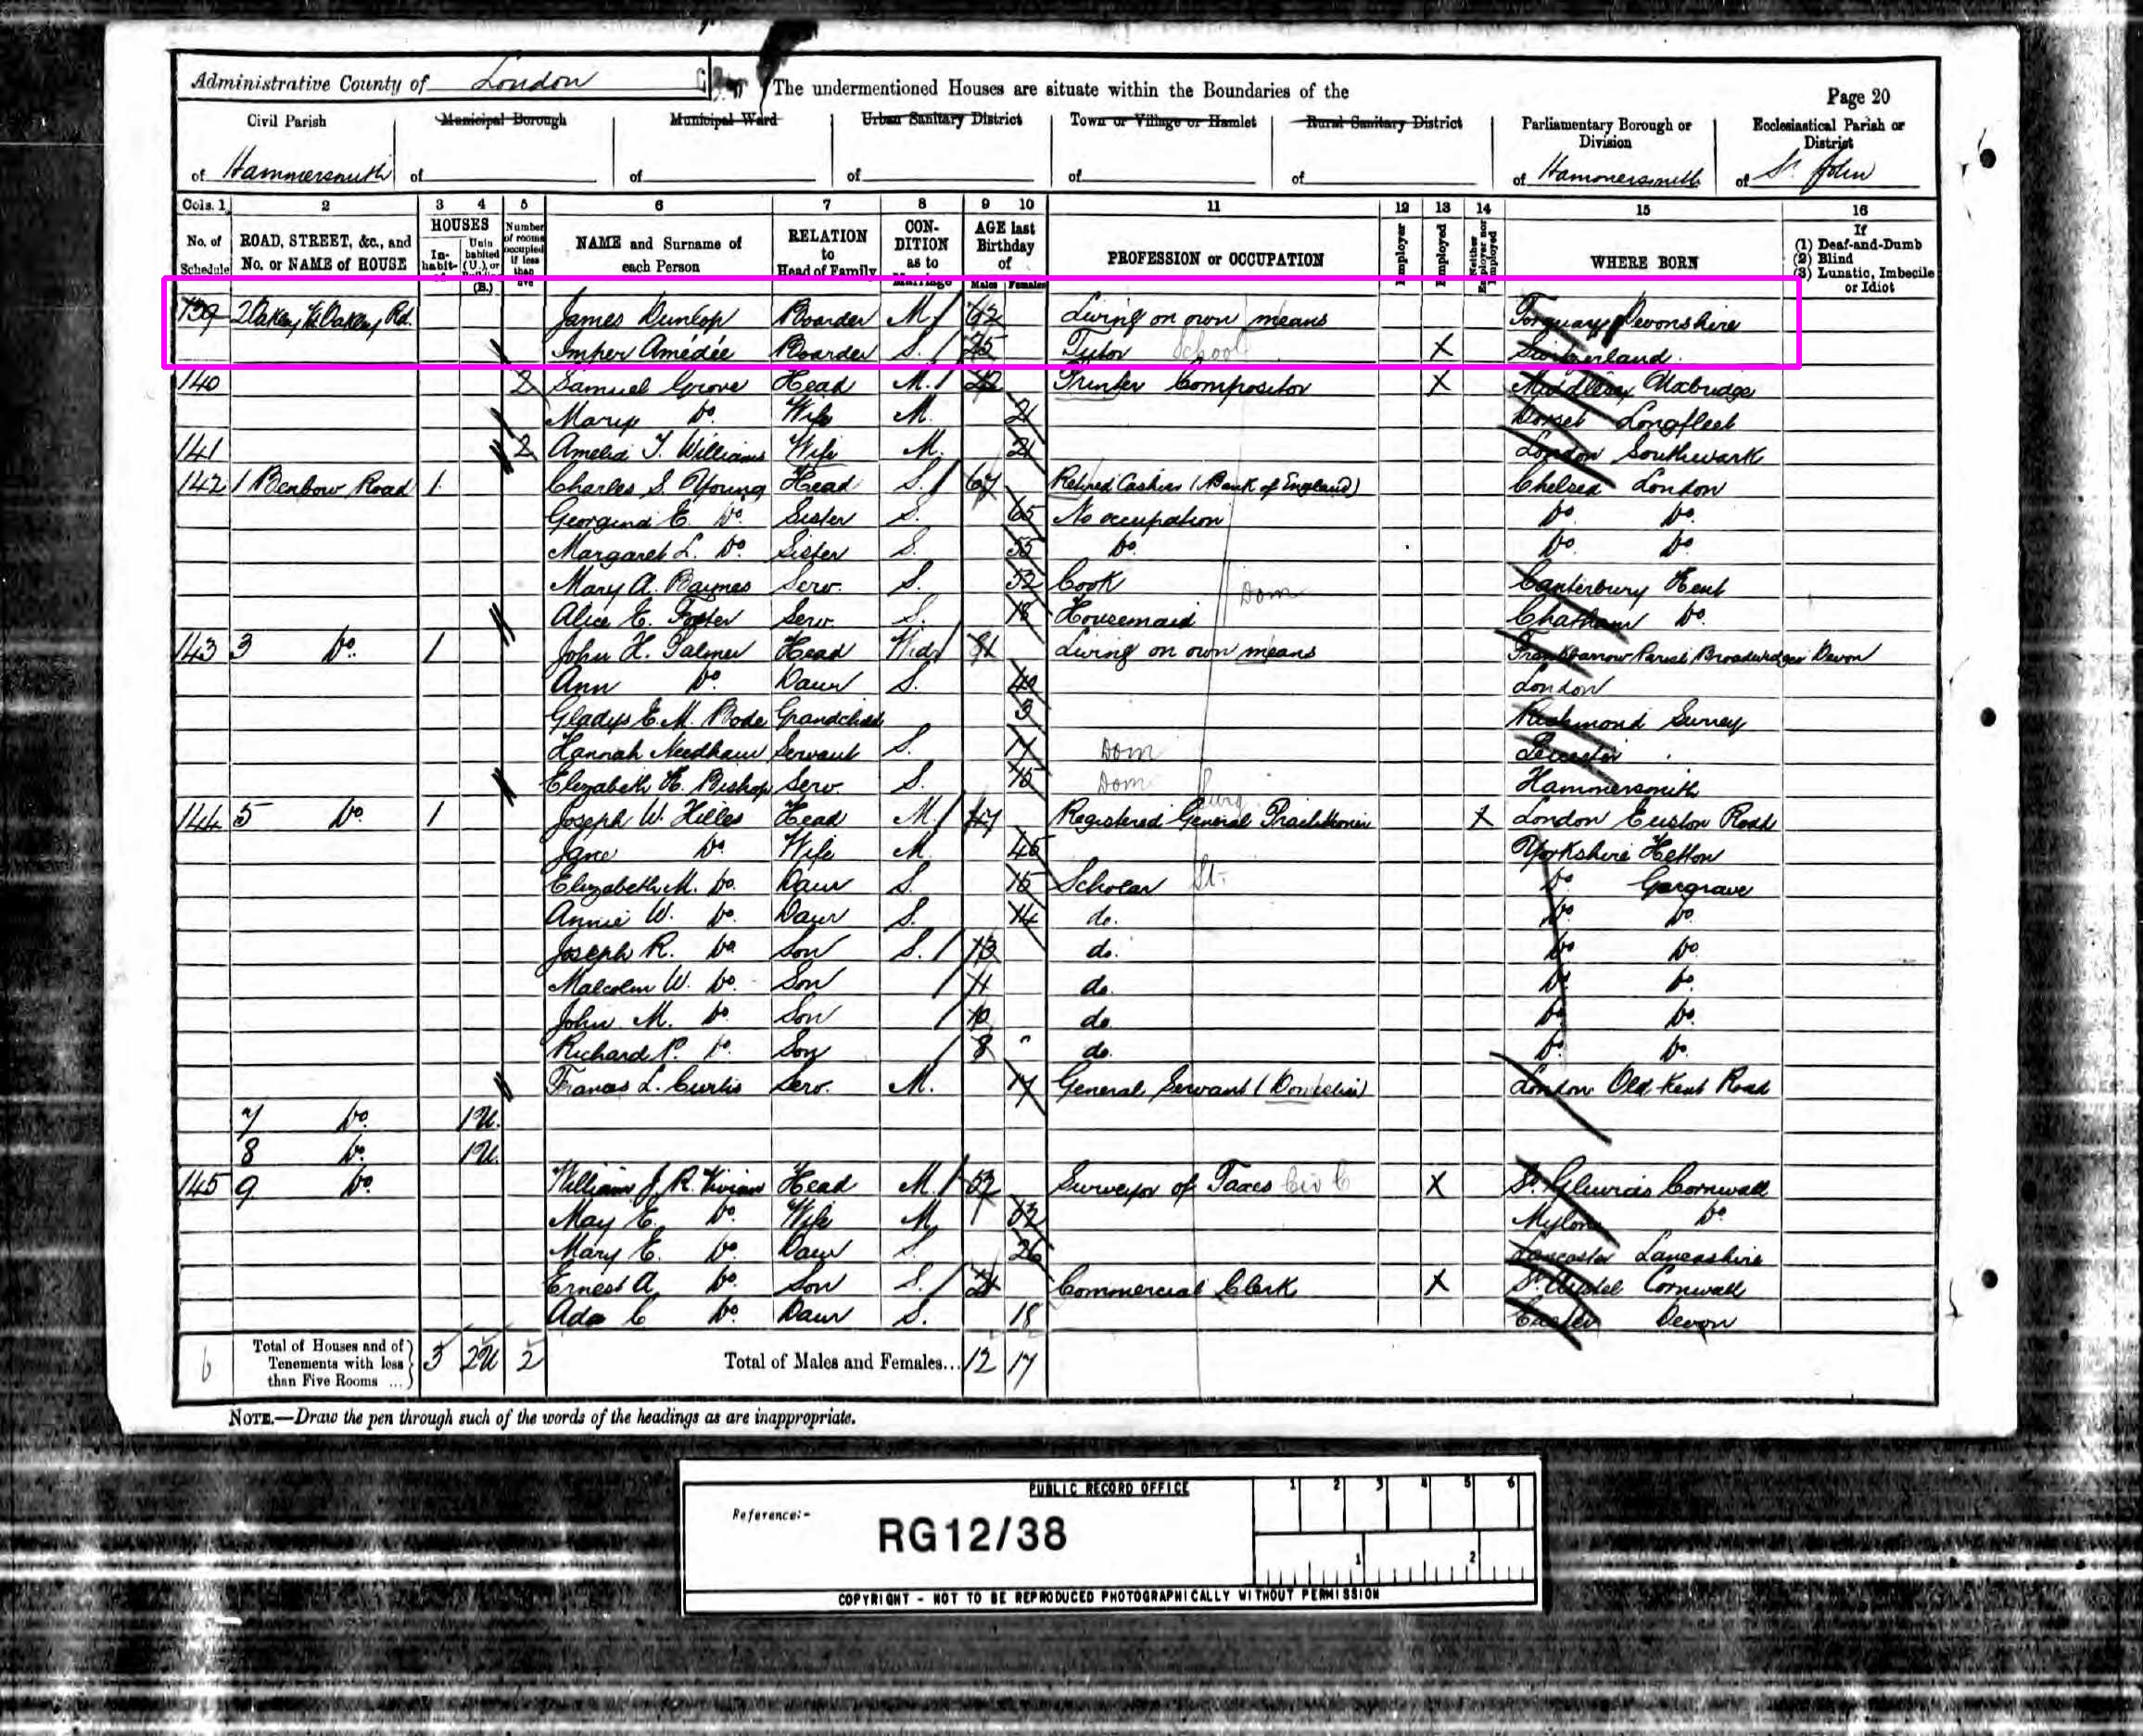 Administrative County of London
The undermentioned Houses are situate within the Boundaries of the
Page 20
Civil Parish of Hammersmith
Municipal Borough of
Municipal Ward of
Urban Sanitary District of
Town or Village or Hamlet of
Rural Sanitary District of
Parliamentary Borough or Division of Hammersmith
Ecclesiastical Parish or District of St. John
Cols. 1 2 3 4 5 6 7 8 9 10 11 12 13 14 15 16
No. of Schedule
ROAD, STREET, &c., and No. or NAME of HOUSE
HOUSES
In-habit-
Unin habited (U.), or (B.)
Number of rooms occupied if less than five
NAME and Surname of each Person
RELATION to Head of Family
CON-DITION as to
AGE last Birthday of
Males Females
PROFESSION or OCCUPATION
Employer
Employed
Neither Employer nor Employed
WHERE BORN
If (1) Deaf-and-Dumb (2) Blind (3) Lunatic, Imbecile or Idiot
139 2 Oakley Rd. James Dunlop Boarder M 62 Living on own means Torquay Devonshire
Imper Amédée Boarder S. 25 Tutor School X Switzerland.
140 2 Samuel Grove Head M. 22 Printer Compositor X Middlesex Uxbridge
Mary Do. Wife M. 21 Dorset Longfleet
141 2 Amelia T. Williams Wife M. 21 London Southwark
142 1 Benbow Road 1 Charles S. Young Head S. 67 Retired Cashier (Bank of England) Chelsea London
Georgina E. Do. Sister S. 65 No occupation Do. Do.
Margaret L. Do. Sister S. 55 Do. Do. Do.
Mary A. Baynes Serv. S. 52 Cook Dom Canterbury Kent
Alice E. Foster Serv. S. 18 Housemaid Chatham Do.
143 3 Do. 1 John H. Palmer Head Widr 81 Living on own means Parish Devon
Ann Do. Daur S. 40 London
Gladys E. M. Bode Grandchild 3 Richmond Surrey
Hannah Needham Servant S. Dom Leicester
Elizabeth H. Bishop Serv. S. 15 Dom Hammersmith
144 5 Do. 1 Joseph W. Hilles Head M. 47 Registered General Practitioner Surg X London Euston Road
Jane Do. Wife M 45 Yorkshire Hetton
Elizabeth M. Do. Daur S. 15 Scholar St. Do. Gargrave
Annie W. Do. Daur S. 14 do. Do. Do.
Joseph R. Do. Son S. 13 do. Do. Do.
Malcolm W. Do. Son 11 do. Do. Do.
John M. Do. Son 10 do. Do. Do.
Richard P. Do. Son 8 do. Do. Do.
Frances L. Curtis Serv. M. 17 General Servant (Domestic) London Old Kent Road
7 Do. 1U.
8 Do. 1U.
145 9 Do. William J. R. Vivian Head M. 52 Surveyor of Taxes Civ C X St. Gluvias Cornwall
May E. Do. Wife M. 52 Mylor Do.
Mary E. Do. Daur S. 26 Lancaster Lancashire
Ernest A Do. Son S. 21 Commercial Clerk X St. Austel Cornwall
Ada C Do. Daur S. 18 Exeter Devon
6 Total of Houses and of Tenements with less than Five Rooms ... 3 2U 2 Total of Males and Females... 12 17
NOTE.—Draw the pen through such of the words of the headings as are inappropriate.
PUBLIC RECORD OFFICE
1 2 3 4 5 6
Reference:-
RG12/38
1 2
COPYRIGHT - NOT TO BE REPRODUCED PHOTOGRAPHICALLY WITHOUT PERMISSION